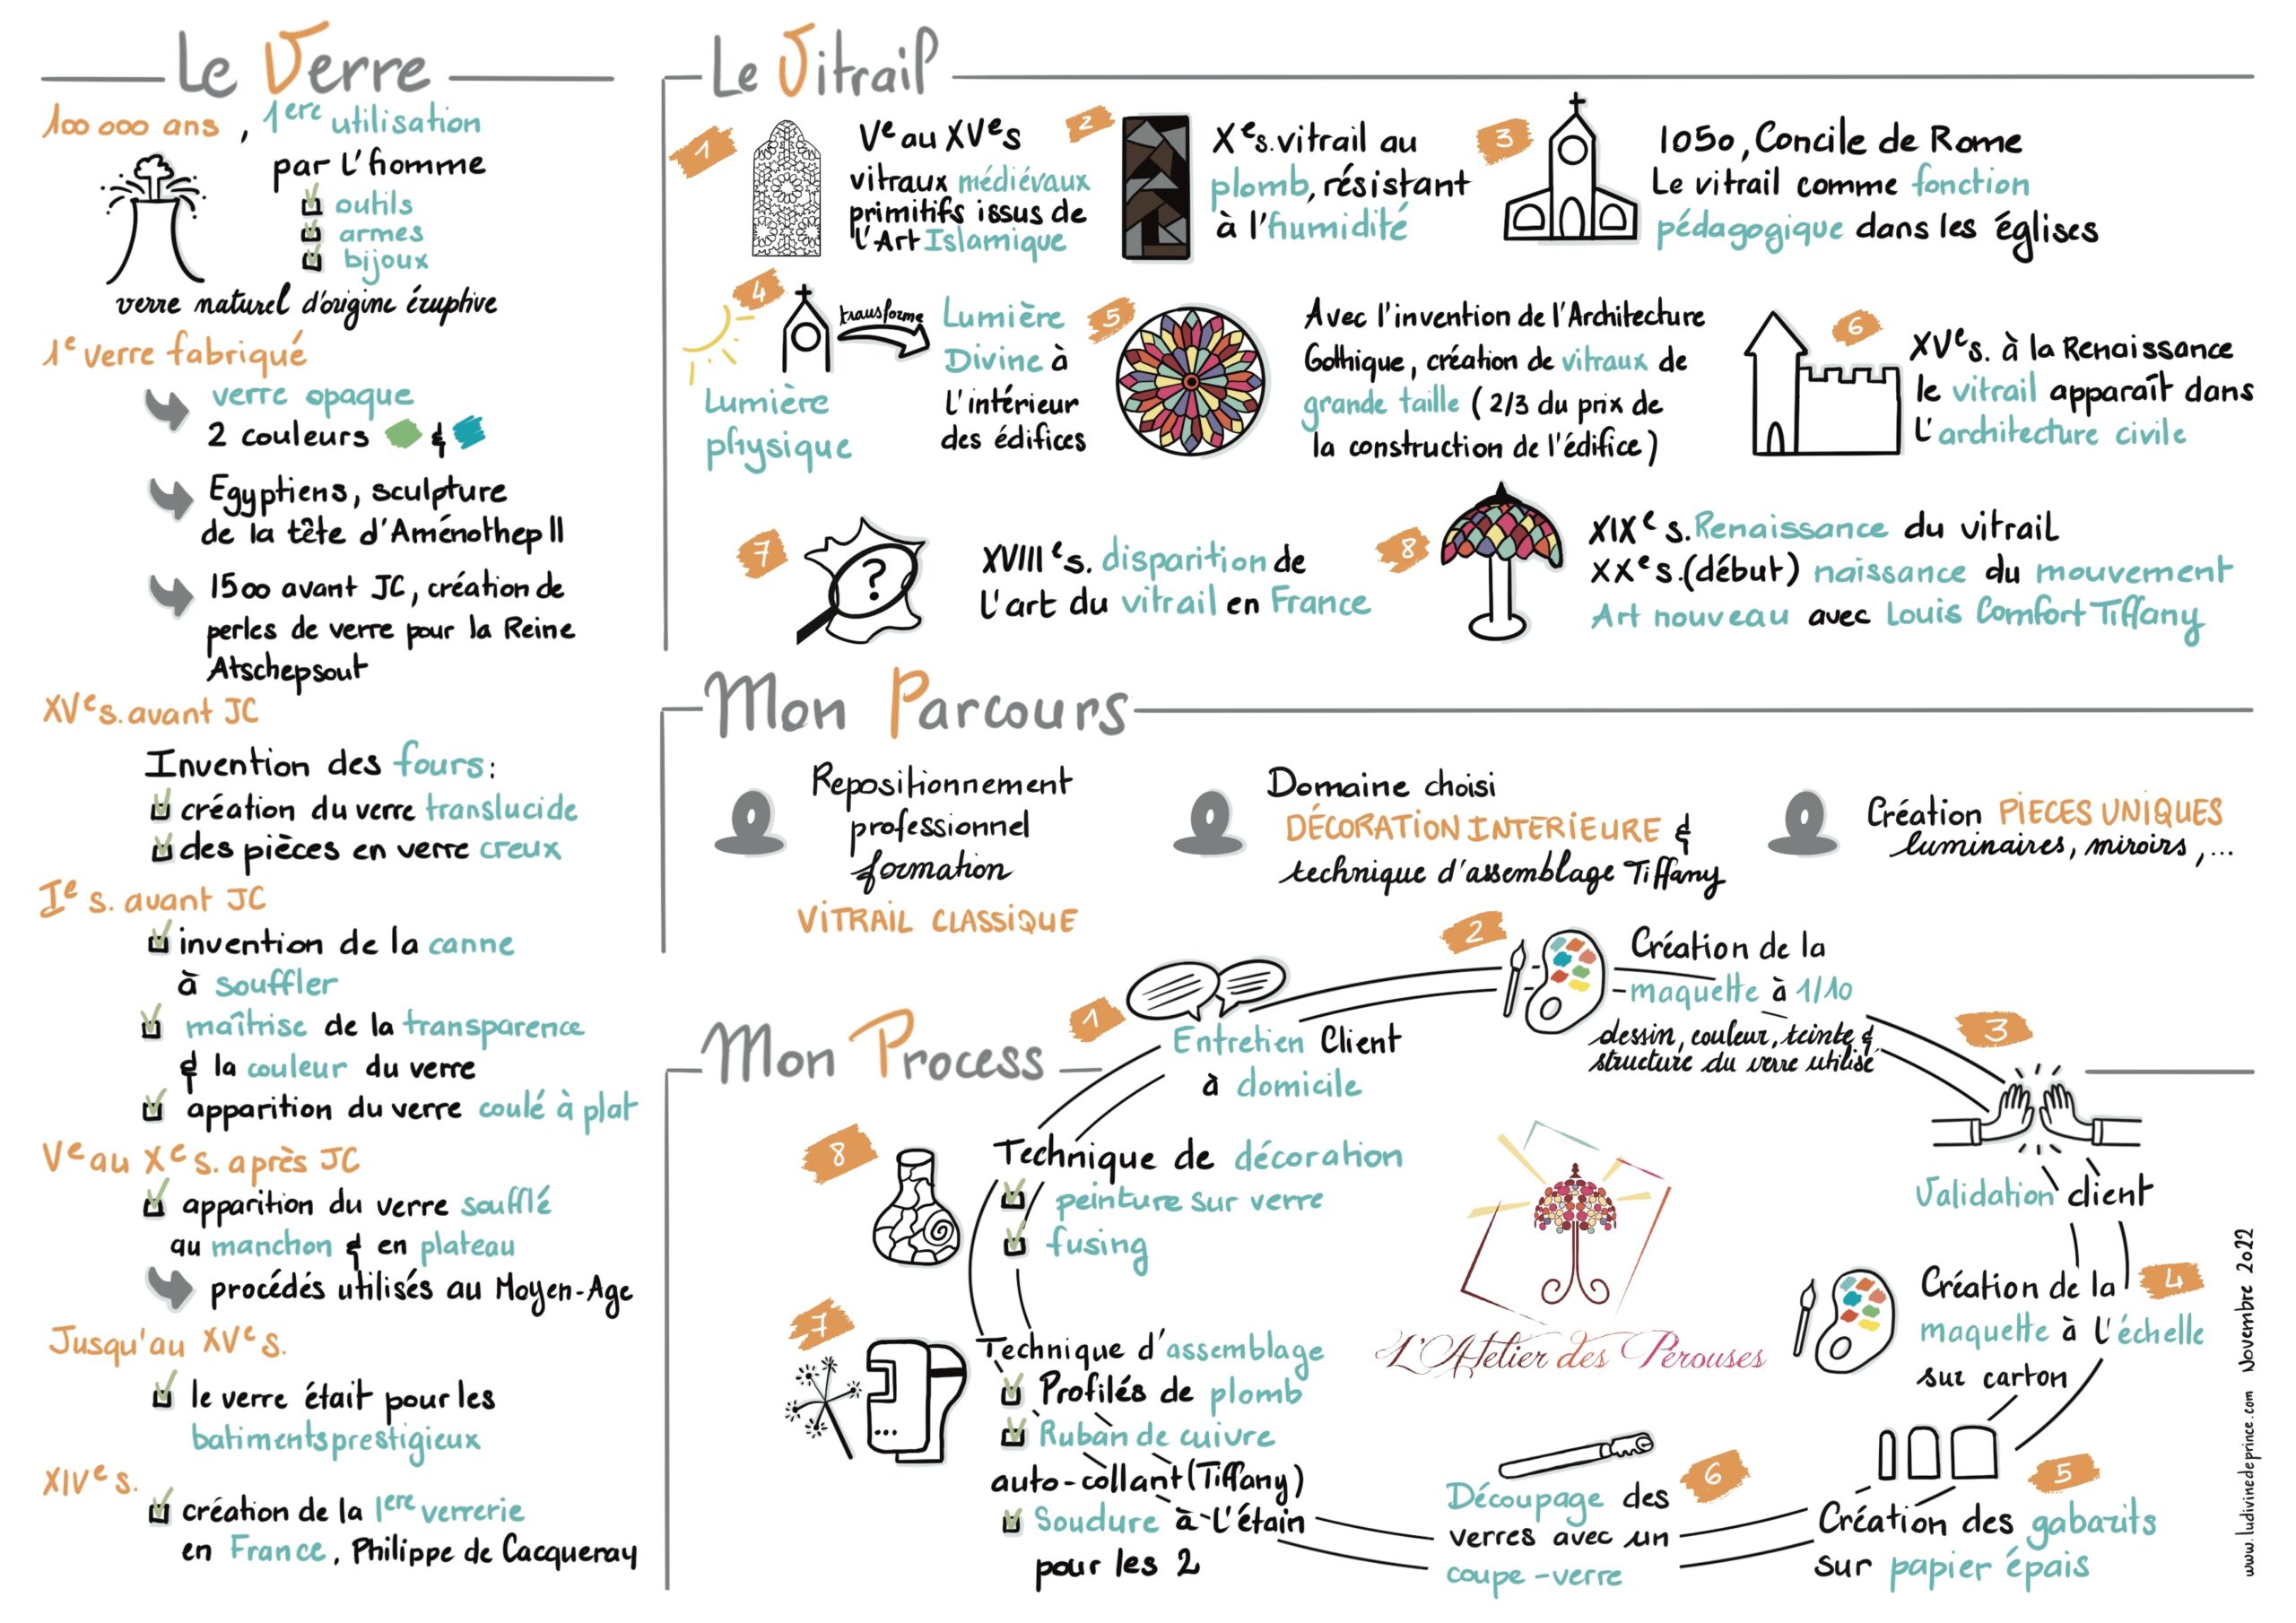 Le Verre
100 000 ans, 1ere utilisation
par l'homme
outils
armes
bijoux
verre naturel d'origine éruptive
1e verre fabriqué
verre opaque
2 couleurs &
Egyptiens, sculpture
de la tête d'Aménothep II
1500 avant JC, création de
perles de verre pour la Reine
Atschepsout
XVe s. avant JC
Invention des fours :
création du verre translucide
des pièces en verre creux
Ie s. avant JC
invention de la canne
à souffler
maîtrise de la transparence
& la couleur du verre
apparition du verre coulé à plat
Ve au Xe s. après JC
apparition du verre soufflé
au manchon & en plateau
procédés utilisés au Moyen-Age
Jusqu'au XVe s.
le verre était pour les
batiments prestigieux
XIVe s.
création de la 1ere verrerie
en France, Philippe de Cacqueray
Le Vitrail
1
Ve au XVe s
vitraux médiévaux
primitifs issus de
l'Art Islamique
2
Xe s. vitrail au
plomb, résistant
à l'humidité
3
1050, Concile de Rome
Le vitrail comme fonction
pédagogique dans les églises
4
Lumière
physique
transforme
Lumière
Divine à
l'intérieur
des édifices
5
Avec l'invention de l'Architecture
Gothique, création de vitraux de
grande taille (2/3 du prix de
la construction de l'édifice)
6
XVe s. à la Renaissance
le vitrail apparaît dans
l'architecture civile
7
?
XVIIIe s. disparition de
l'art du vitrail en France
8
XIXe s. Renaissance du vitrail
XXe s. (début) naissance du mouvement
Art nouveau avec Louis Comfort Tiffany
Mon Parcours
Repositionnement
professionnel
formation
VITRAIL CLASSIQUE
Domaine choisi
DÉCORATION INTERIEURE &
technique d'assemblage Tiffany
Création PIECES UNIQUES
luminaires, miroirs, ...
Mon Process
1
Entretien Client
à domicile
2
Création de la
maquette à 1/10
dessin, couleur, teinte &
structure du verre utilisé
3
Validation client
4
Création de la
maquette à l'échelle
sur carton
5
Création des gabarits
sur papier épais
6
Découpage des
verres avec un
coupe-verre
7
Technique d'assemblage
Profilés de plomb
Ruban de cuivre
auto-collant (Tiffany)
Soudure à l'étain
pour les 2
8
Technique de décoration
peinture sur verre
fusing
L'Atelier des Pérouses
www.ludivinedeprince.com Novembre 2022